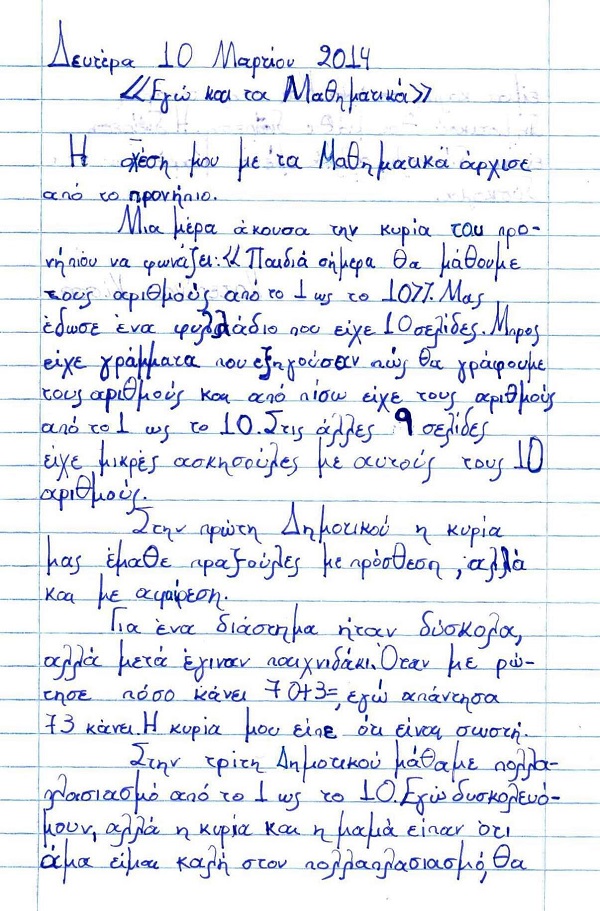 Δευτέρα 10 Μαρτίου 2014
«Εγώ και τα Μαθηματικά»
Η σχέση μου με τα Μαθηματικά άρχισε
από το προνήπιο.
Μια μέρα άκουσα την κυρία του προ-
νήπιου να φωνάζει: «Παιδιά σήμερα θα μάθουμε
τους αριθμούς από το 1 ως το 10». Μας
έδωσε ένα φυλλάδιο που είχε 10 σελίδες. Μπρος
είχε γράμματα που εξηγούσαν πώς θα γράφουμε
τους αριθμούς και από πίσω είχε τους αριθμούς
από το 1 ως το 10. Στις άλλες 9 σελίδες
είχε μικρές ασκησούλες με αυτούς τους 10
αριθμούς.
Στην πρώτη Δημοτικού η κυρία
μας έμαθε πραξούλες με πρόσθεση, αλλά
και με αφαίρεση.
Για ένα διάστημα ήταν δύσκολα,
αλλά μετά έγιναν παιχνιδάκι. Όταν με ρώ-
τησε πόσο κάνει 70+3=, εγώ απάντησα
73 κάνει. Η κυρία μου είπε ότι είναι σωστή.
Στην τρίτη Δημοτικού μάθαμε πολλα-
πλασιασμό από το 1 ως το 10. Εγώ δυσκολευό-
μουν, αλλά η κυρία και η μαμά είπαν ότι
άμα είμαι καλή στον πολλαπλασιασμό, θα